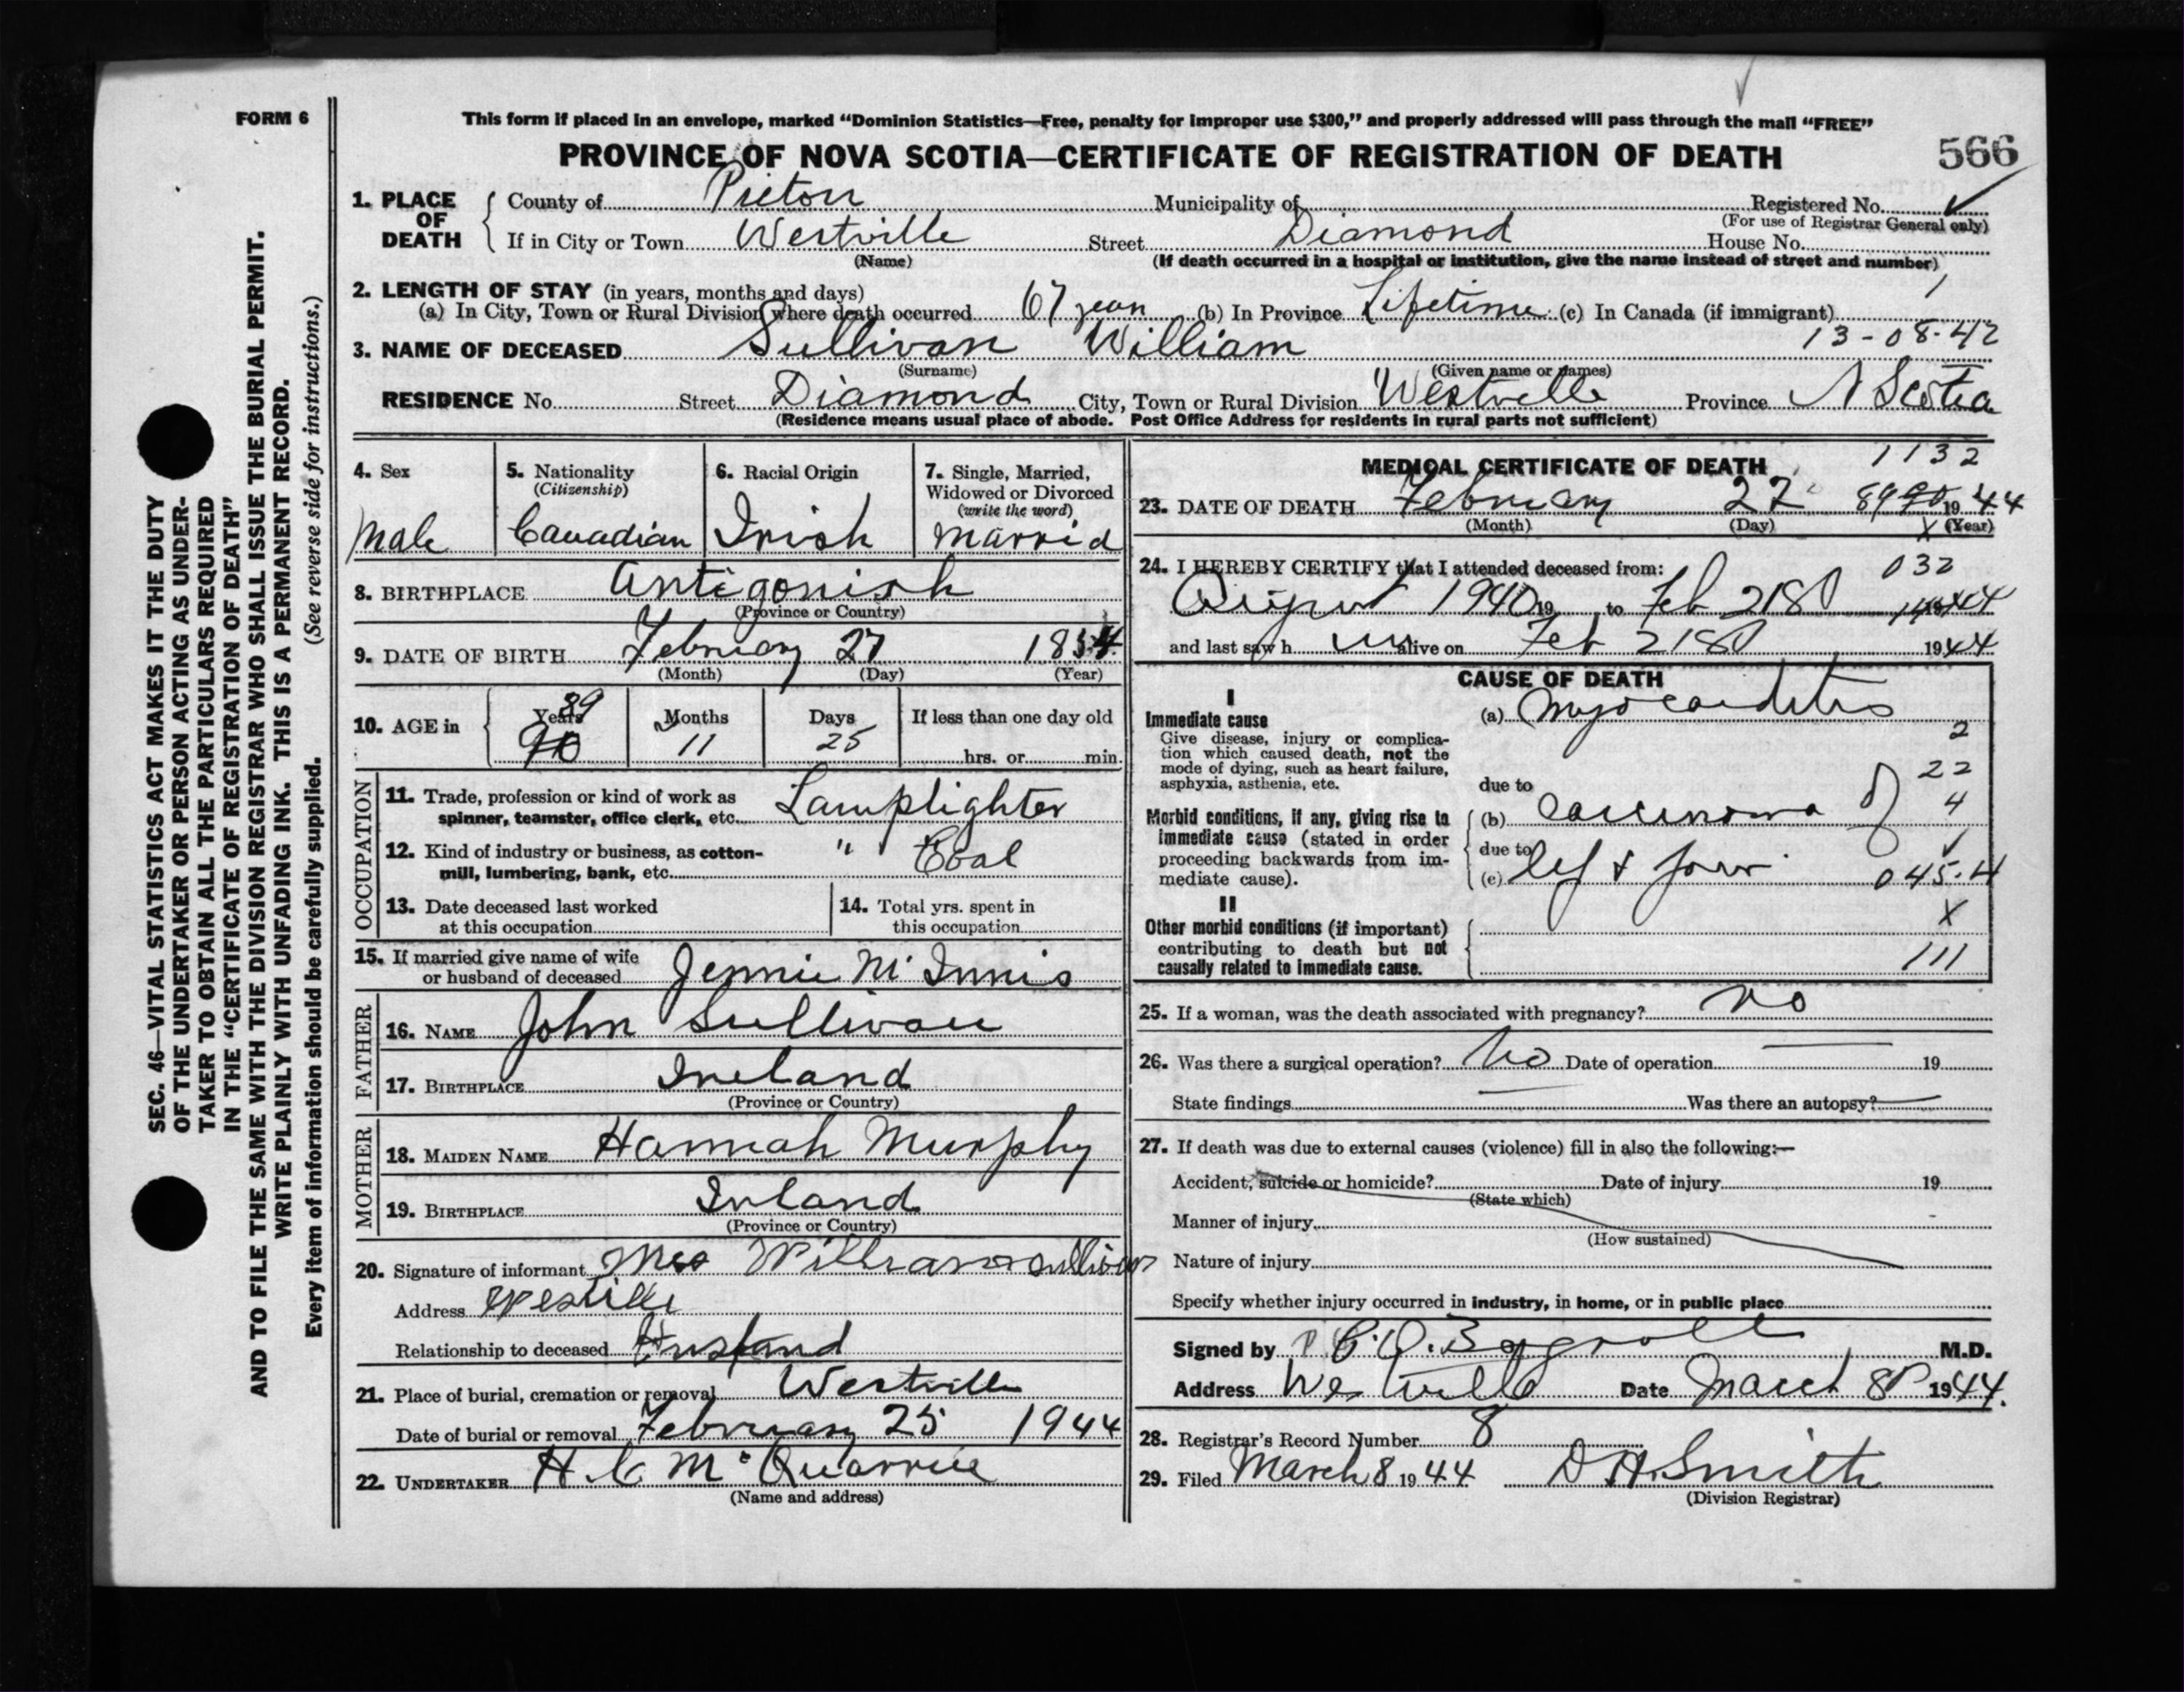 FORM 6
This form if placed in an envelope, marked “Dominion Statistics—Free, penalty for improper use $300,” and properly addressed will pass through the mail “FREE”
PROVINCE OF NOVA SCOTIA—CERTIFICATE OF REGISTRATION OF DEATH
566
1. PLACE OF DEATH
County of Pictou Municipality of Registered No.
(For use of Registrar General only)
If in City or Town Westville Street Diamond House No.
(Name) (If death occurred in a hospital or institution, give the name instead of street and number)
2. LENGTH OF STAY (in years, months and days)
(a) In City, Town or Rural Division where death occurred 67 years (b) In Province Lifetime (c) In Canada (if immigrant)
13-08-42
3. NAME OF DECEASED Sullivan William
(Surname) (Given name or names)
RESIDENCE No. Street Diamond City, Town or Rural Division Westville Province N Scotia
(Residence means usual place of abode. Post Office Address for residents in rural parts not sufficient)
4. Sex
Male
5. Nationality
(Citizenship)
Canadian
6. Racial Origin
Irish
7. Single, Married,
Widowed or Divorced
(write the word)
Married
8. BIRTHPLACE Antigonish
(Province or Country)
9. DATE OF BIRTH February 27 1854
(Month) (Day) (Year)
10. AGE in
Years 89 90
Months 11
Days 25
If less than one day old
hrs. or min.
OCCUPATION
11. Trade, profession or kind of work as
spinner, teamster, office clerk, etc. Lamplighter
12. Kind of industry or business, as cotton-
mill, lumbering, bank, etc. " Coal
13. Date deceased last worked
at this occupation
14. Total yrs. spent in
this occupation
15. If married give name of wife
or husband of deceased Jennie McInnis
FATHER
16. NAME John Sullivan
17. BIRTHPLACE Ireland
(Province or Country)
MOTHER
18. MAIDEN NAME Hannah Murphy
19. BIRTHPLACE Irland
(Province or Country)
20. Signature of informant Mrs William Sullivan
Address Westville
Relationship to deceased Husband
21. Place of burial, cremation or removal Westville
Date of burial or removal February 25 1944
22. UNDERTAKER H. C. McQuarrie
(Name and address)
MEDICAL CERTIFICATE OF DEATH 1132
23. DATE OF DEATH February 22 89 90 1944
(Month) (Day) (Year)
032
24. I HEREBY CERTIFY that I attended deceased from:
August 1940 19 to Feb 21st 1944
and last saw h im alive on Feb 21st 1944
CAUSE OF DEATH
I
Immediate cause
Give disease, injury or complica-
tion which caused death, not the
mode of dying, such as heart failure,
asphyxia, asthenia, etc.
(a) Myocarditis
2
22
due to
Morbid conditions, if any, giving rise to
immediate cause (stated in order
proceeding backwards from im-
mediate cause).
(b) Carcinoma of 4
due to
(c) lip & jaw 045.4
II
Other morbid conditions (if important)
contributing to death but not
causally related to immediate cause.
X
111
25. If a woman, was the death associated with pregnancy? no
26. Was there a surgical operation? No Date of operation 19
State findings Was there an autopsy?
27. If death was due to external causes (violence) fill in also the following:—
Accident, suicide or homicide? Date of injury 19
(State which)
Manner of injury
(How sustained)
Nature of injury
Specify whether injury occurred in industry, in home, or in public place
Signed by M.D.
Address Westville Date March 8th 1944.
28. Registrar's Record Number 8
29. Filed March 8 1944 D H Smith
(Division Registrar)
SEC. 46—VITAL STATISTICS ACT MAKES IT THE DUTY
OF THE UNDERTAKER OR PERSON ACTING AS UNDER-
TAKER TO OBTAIN ALL THE PARTICULARS REQUIRED
IN THE “CERTIFICATE OF REGISTRATION OF DEATH”
AND TO FILE THE SAME WITH THE DIVISION REGISTRAR WHO SHALL ISSUE THE BURIAL PERMIT.
WRITE PLAINLY WITH UNFADING INK. THIS IS A PERMANENT RECORD.
Every item of information should be carefully supplied. (See reverse side for instructions.)